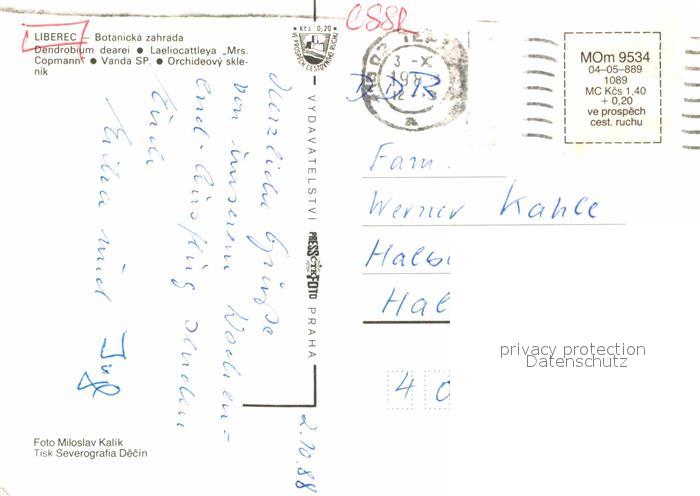 LIBEREC – Botanická zahrada
Dendrobium dearei ● Laeliocattleya „Mrs.
Copmann" ● Vanda SP. ● Orchideový skle-
ník
Kčs 0,20
VE PROSPĚCH CESTOVNÍHO RUCHU
ČSSR
3 -X
12
DDR
MOm 9534
04-05-889
1089
MC Kčs 1,40
+ 0,20
ve prospěch
cest. ruchu
Herzliche Grüße
von unserem Wochen-
end-Ausflug senden
Euch
und
2.10.88
VYDAVATELSTVÍ PRESSFOTO PRAHA
ČTK
Fam.
Werner Kahle
Halb
Hal
4 0
privacy protection
Datenschutz
Foto Miloslav Kalík
Tisk Severografia Děčín